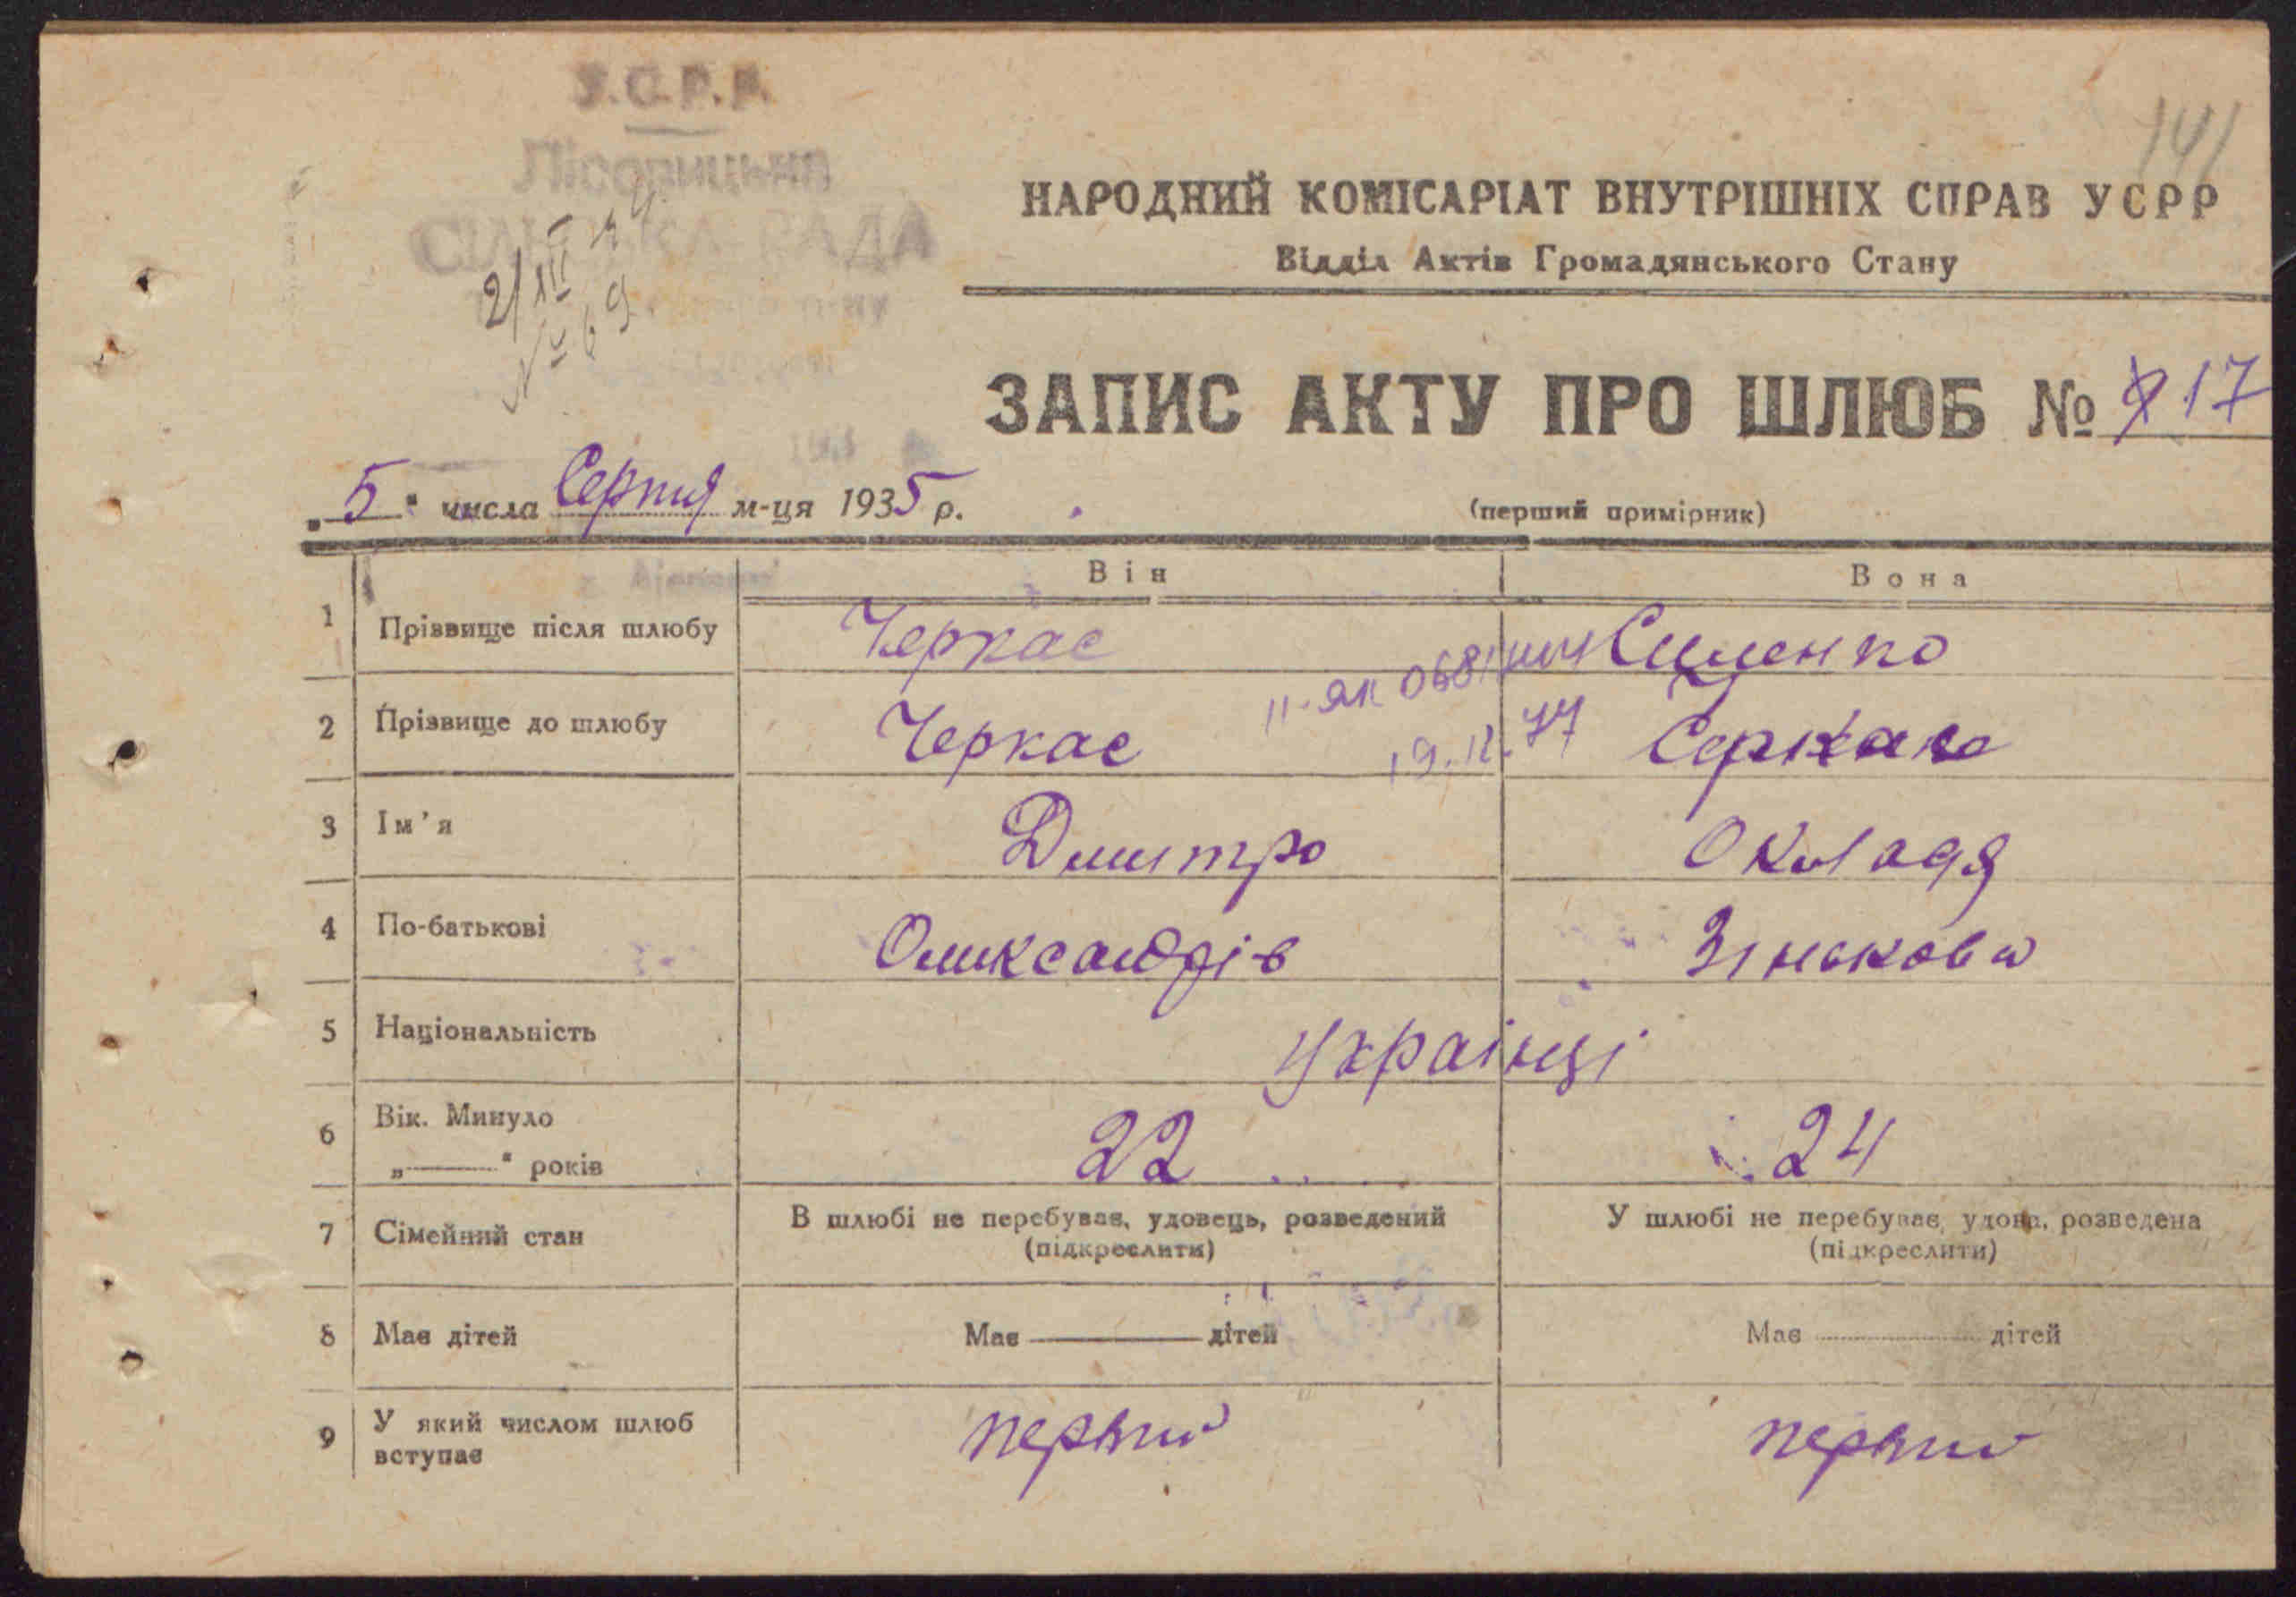 У.С.Р.Р.
СІЛЬСЬКА РАДА
141
НАРОДНИЙ КОМІСАРІАТ ВНУТРІШНІХ СПРАВ УСРР
Відділ Актів Громадянського Стану
№ 69
ЗАПИС АКТУ ПРО ШЛЮБ № 17
„5" числа Серпня м-ця 1935 р.
(перший примірник)
Він Вона
1 Прізвище після шлюбу Черкас Семенко
2 Прізвище до шлюбу Черкас
II-ЯК 068
19.12.77
3 Ім'я Дмитро
4 По-батькові Олександрів
5 Національність Українці
6 Вік. Минуло „—" років 22 24
7 Сімейний стан В шлюбі не перебував, удовець, розведений (підкреслити) У шлюбі не перебуває, удова, розведена (підкреслити)
8 Має дітей Має — дітей Має ........ дітей
9 У який числом шлюб вступає первий первий